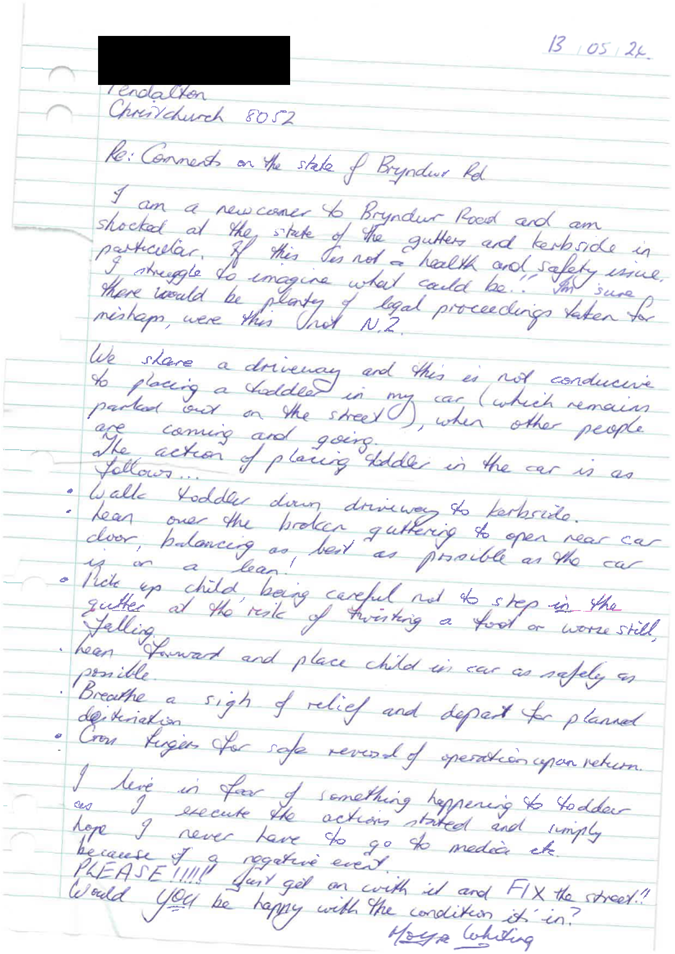 13 05 24.
Fendalton
Christchurch 8052
Re: Comments on the state of Bryndwr Rd
I am a newcomer to Bryndwr Road and am
shocked at the state of the gutters and kerbside in
particular. If this is not a health and safety issue,
I struggle to imagine what could be.. I'm sure
there would be plenty of legal proceedings taken for
mishaps, were this not N.Z.
We share a driveway and this is not conducive
to placing a toddler in my car (which remains
parked out on the street), when other people
are coming and going.
The action of placing toddler in the car is as
follows...
• Walk toddler down driveway to kerbside.
• Lean over the broken guttering to open rear car
door, balancing as best as possible as the car
is on a lean!
• Pick up child, being careful not to step in the
gutter at the risk of twisting a foot or worse still,
falling.
• Lean forward and place child in car as safely as
possible.
• Breathe a sigh of relief and depart for planned
destination
• Cross fingers for safe reversal of operation upon return.
I live in fear of something happening to toddler
as I execute the actions stated and simply
hope I never have to go to media etc.
because of a negative event.
PLEASE!!!!! Just get on with it and FIX the street!!
Would YOU be happy with the condition it's in?
Whiting